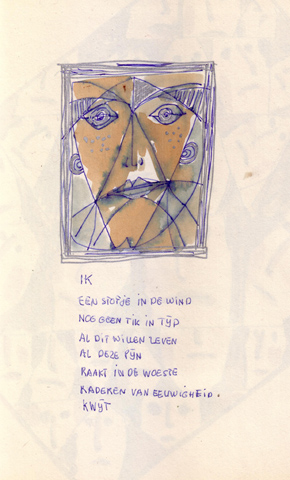 IK
EEN STOFJE IN DE WIND
NOG GEEN TIK IN TIJD
AL DIT WILLEN LEVEN
AL DEZE PIJN
RAAKT IN DE WOESTE
KADEREN VAN EEUWIGHEID.
KWIJT